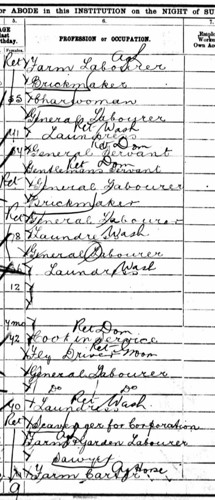 or ABODE in this INSTITUTION on the NIGHT of SU
5. 6. 7.
AGE
last
thday.
PROFESSION or OCCUPATION.
Females.
Employ
Work
Own Acc
Agl
Ret Farm Labourer
Brickmaker
Charwoman
General Labourer
Ret Wash
41 Laundress
Ret Dom
General Servant
Ret Dom
Gentlemans Servant
Ret General Labourer
Brickmaker
Ret General Labourer
78 Laundry Wash
General Labourer
Laundress Wash
12
7mo
Ret Dom
42 Cook in Service
Ret Groom
Fly Driver
General Labourer
Do Do
Ret Wash
40 Laundress
Ret Scavenger for Corporation
Farm & Garden Labourer
Sawyer
Ag Horse
Farm Carter
9